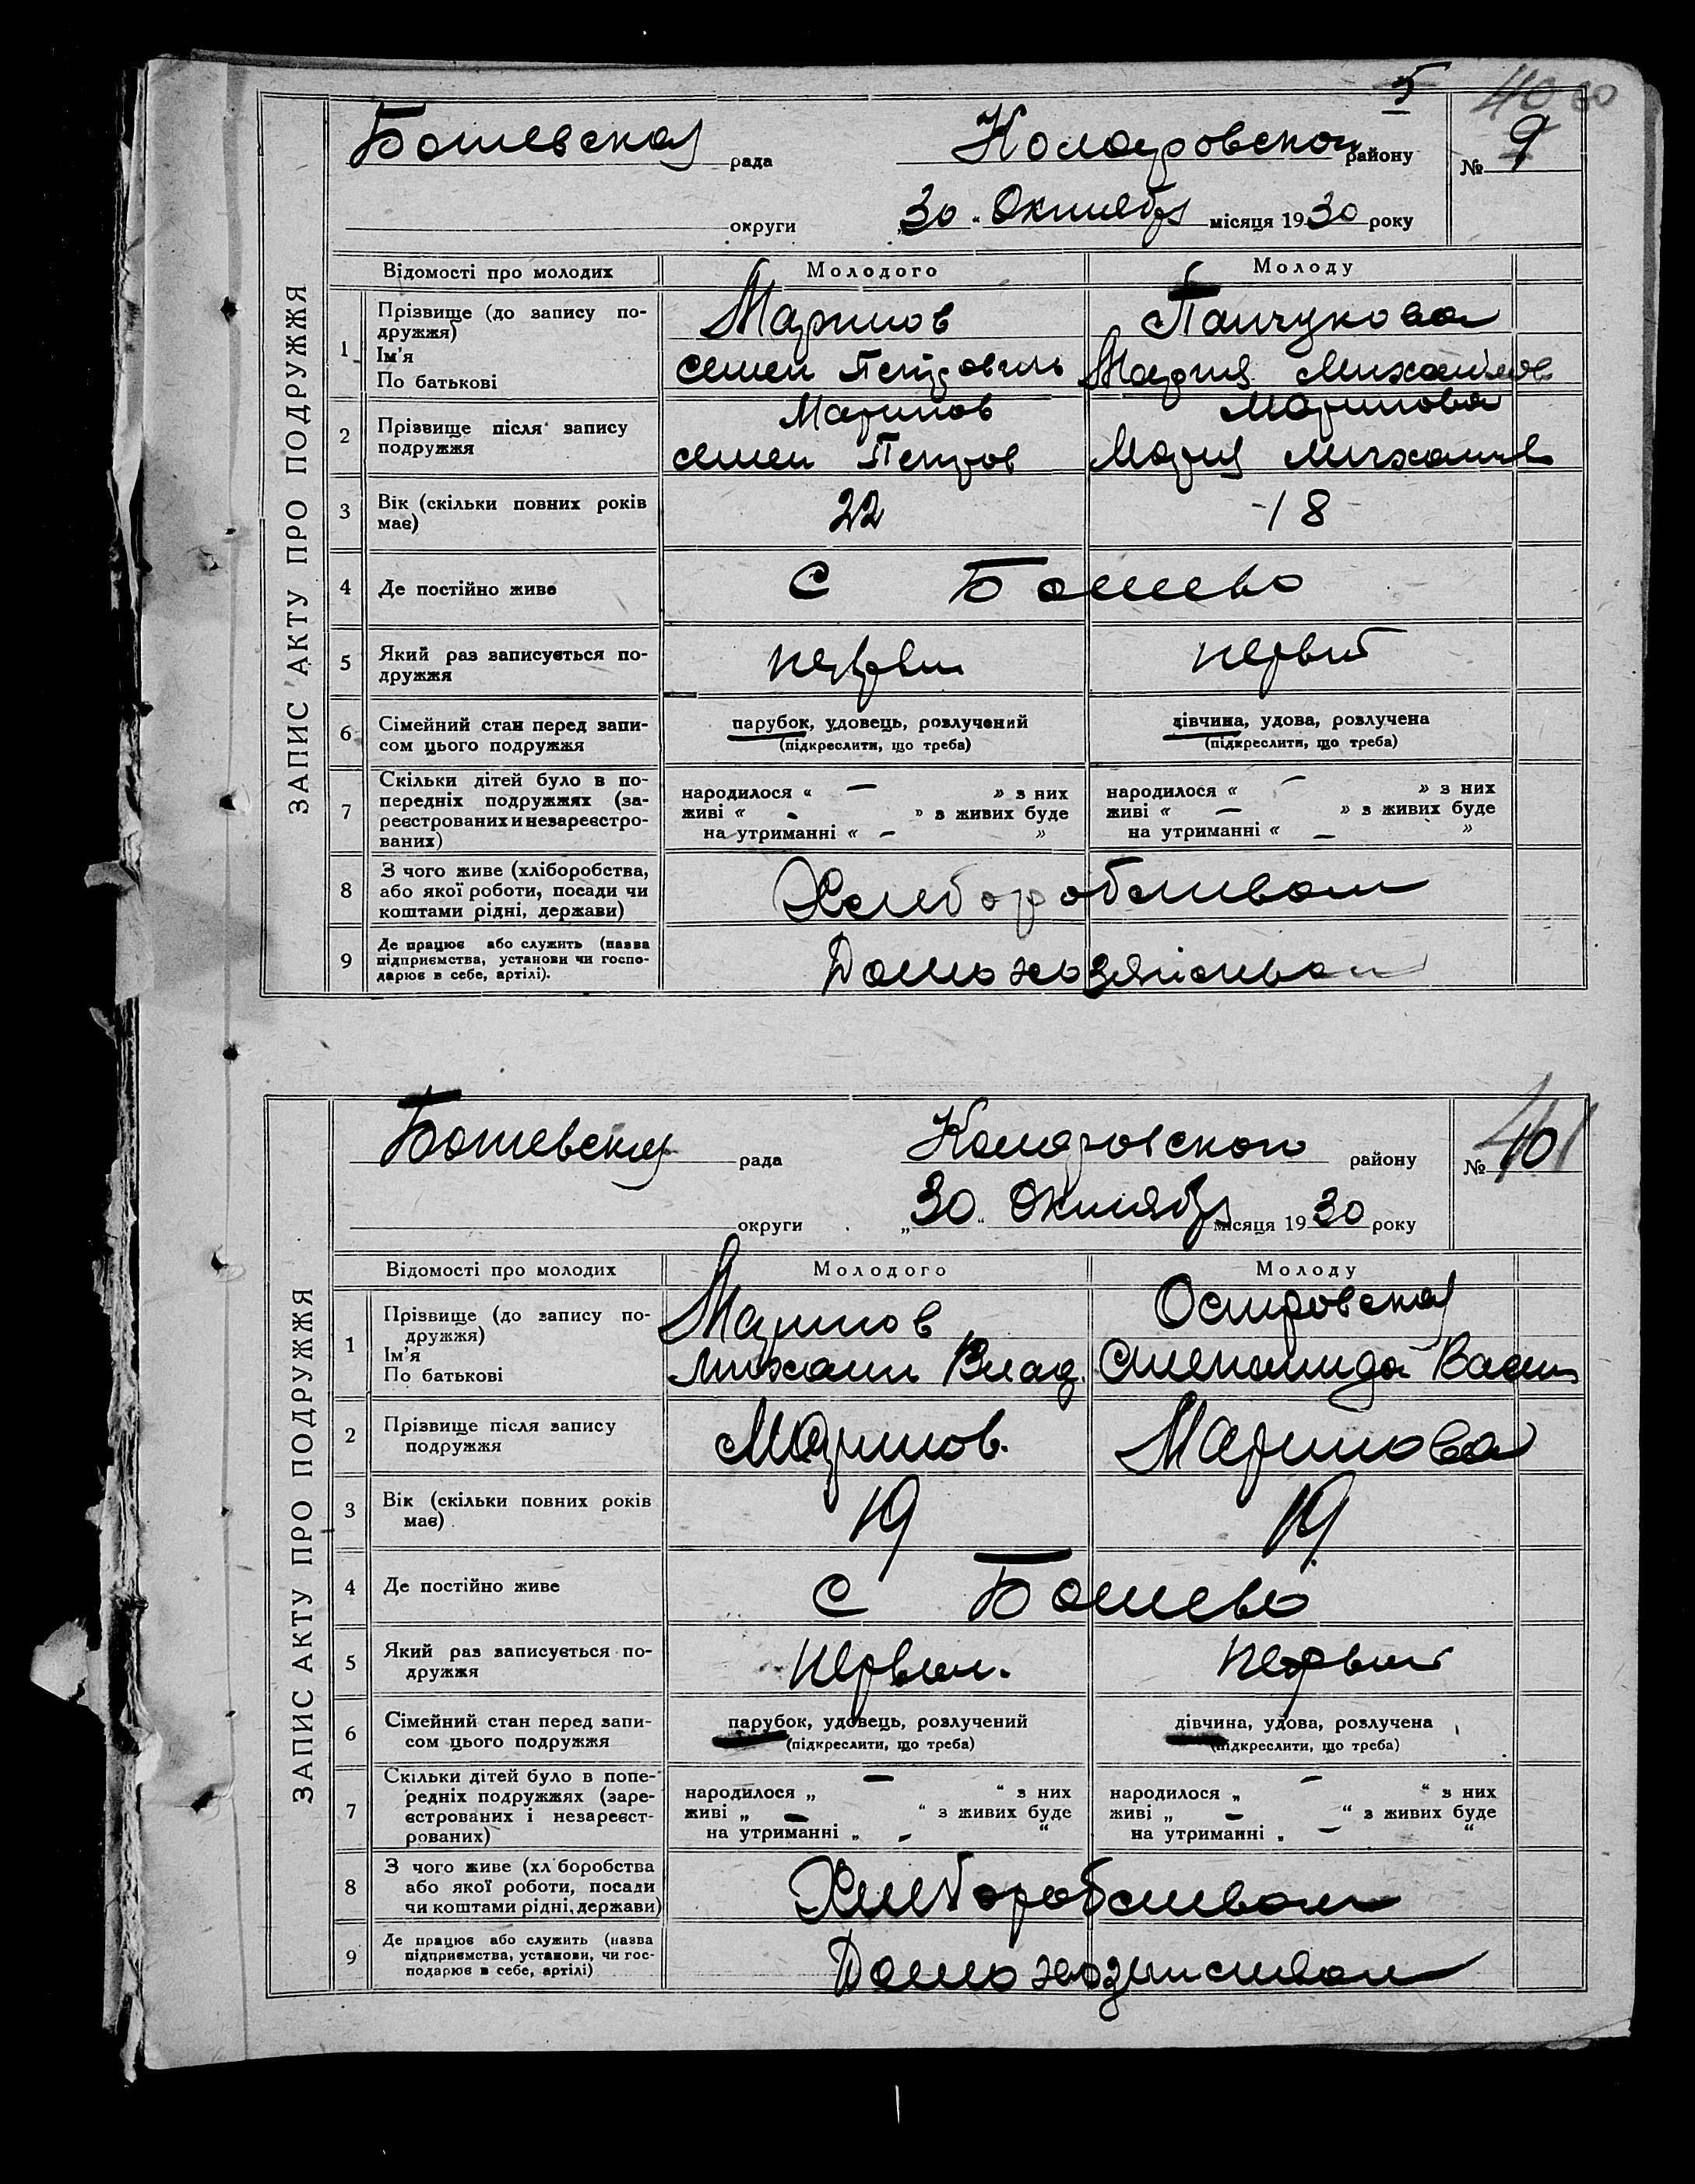 5 40
Ботевская рада Коларовского району № 9
округи „30“ Октября місяця 1930 року
ЗАПИС АКТУ ПРО ПОДРУЖЖЯ
Відомості про молодих Молодого Молоду
1 Прізвище (до запису по-
дружжя)
Ім'я
По батькові
Маринов
Семен Петрович
Мария Михайлов
2 Прізвище після запису
подружжя
Маринов
Семен Петров
Маринова
Мария Михайлов
3 Вік (скільки повних років
має)
22 -18-
4 Де постійно живе С Ботево
5 Який раз записується по-
дружжя
первый первый
6 Сімейний стан перед запи-
сом цього подружжя
парубок, удовець, розлучений
(підкреслити, що треба)
дівчина, удова, розлучена
(підкреслити, що треба)
7 Скільки дітей було в по-
передніх подружжях (за-
реєстрованих и незареєстро-
ваних)
народилося « — » з них
живі « - » з живих буде
на утриманні « — »
народилося « — » з них
живі « — » з живих буде
на утриманні « — »
8 З чого живе (хліборобства,
або якої роботи, посади чи
коштами рідні, держави)
Хлеборобством
9 Де працює або служить (назва
підприємства, установи чи госпо-
дарює в себе, артілі).
Домохозяйством
Ботевская рада Коларовского району № 10
округи „30“ Октября місяця 1930 року
ЗАПИС АКТУ ПРО ПОДРУЖЖЯ
Відомості про молодих Молодого Молоду
1 Прізвище (до запису по-
дружжя)
Ім'я
По батькові
Маринов
Михаил Влад.
Островская
Степанида Васил
2 Прізвище після запису
подружжя
Маринов. Маринова
3 Вік (скільки повних років
має)
19 19
4 Де постійно живе С Ботево
5 Який раз записується по-
дружжя
первый. первый
6 Сімейний стан перед запи-
сом цього подружжя
парубок, удовець, розлучений
(підкреслити, що треба)
дівчина, удова, розлучена
(підкреслити, що треба)
7 Скільки дітей було в попе-
редніх подружжях (заре-
єстрованих і незареєст-
рованих)
народилося „ — “ з них
живі „ — “ з живих буде
на утриманні „ - “
народилося „ — “ з них
живі „ — “ з живих буде
на утриманні „ — “
8 З чого живе (хл боробства
або якої роботи, посади
чи коштами рідні, держави)
Хлеборобством
9 Де працює або служить (назва
підприємства, установи, чи гос-
подарює в себе, артілі)
Домохозяйством